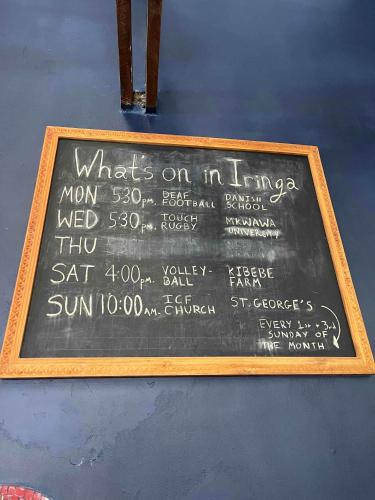 What's on in Iringa
MON 5:30 PM. DEAF FOOTBALL DANISH SCHOOL
WED 5:30 PM. TOUCH RUGBY MKWAWA UNIVERSITY
THU
SAT 4:00 PM. VOLLEY-BALL KIBEBE FARM
SUN 10:00 AM. ICF CHURCH ST. GEORGE'S
EVERY 1st + 3rd
SUNDAY OF
THE MONTH